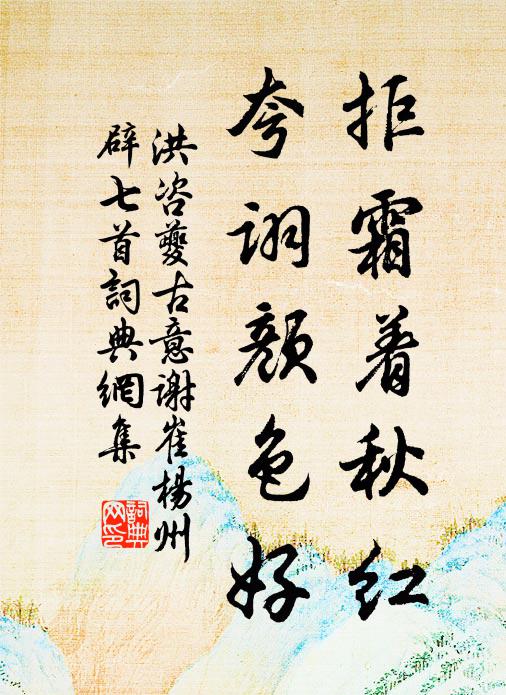 拒霜着秋红
夸诩颜色好
洪咨夔古意謝崔楊州
辟七首詞典網集
詞典网印